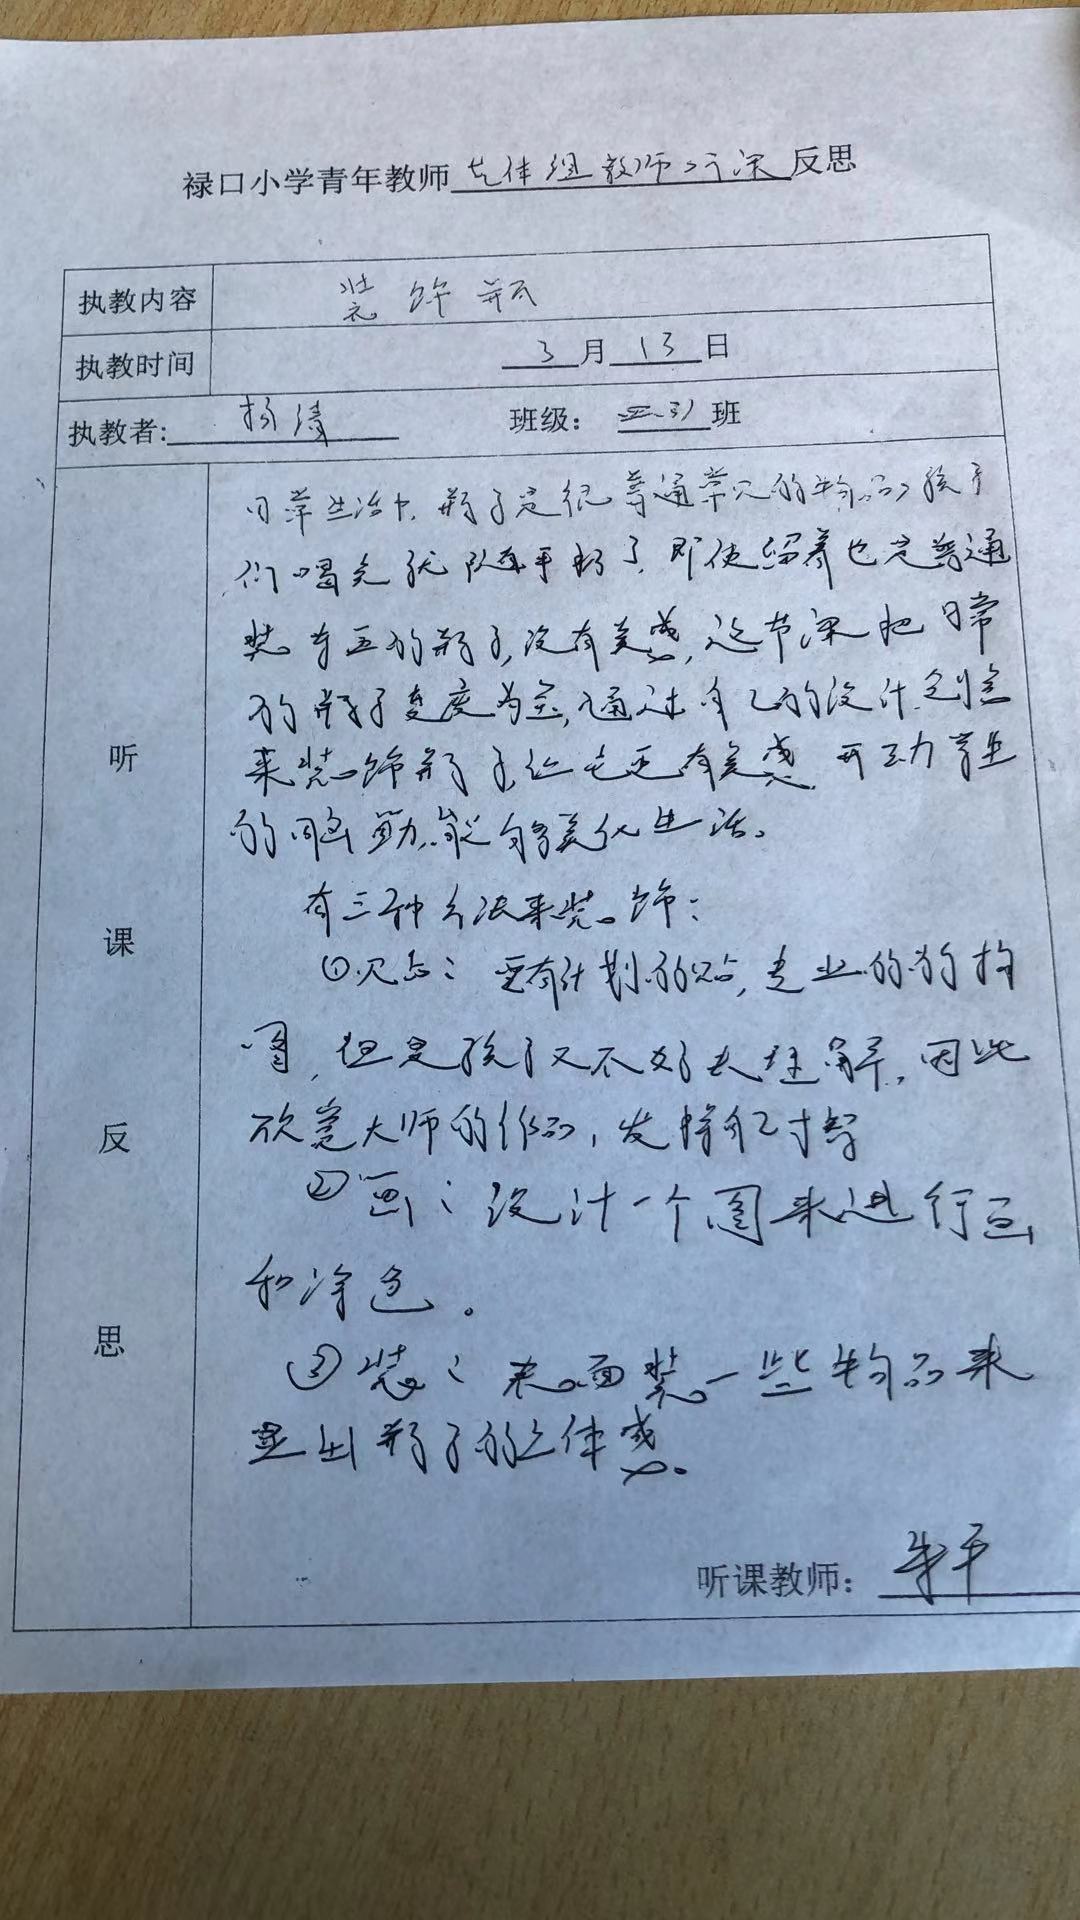 禄口小学青年教师艺体组教师听课反思
执教内容 装饰瓶
执教时间 3月13日
执教者: 杨 班级: 班
听课反思
日常生活中,瓶子是很普通常见的物品,孩子
们喝完就随手扔了,即使留着也是普通
装东西的瓶子,没有美感,这节课把日常
的瓶子变废为宝,通过自己的设计、创意
来装饰瓶子,让它更有美感,开动学生
的脑筋,能够美化生活。
有三种方法来装饰:
①贴:要有计划的贴,专业的的构
图,但是孩子又不好去理解,因此
欣赏大师的作品,发挥自己才智
②画:设计一个图来进行画
和涂色。
③装:表面装一些物品来
显出瓶子的立体感。
听课教师: 朱平